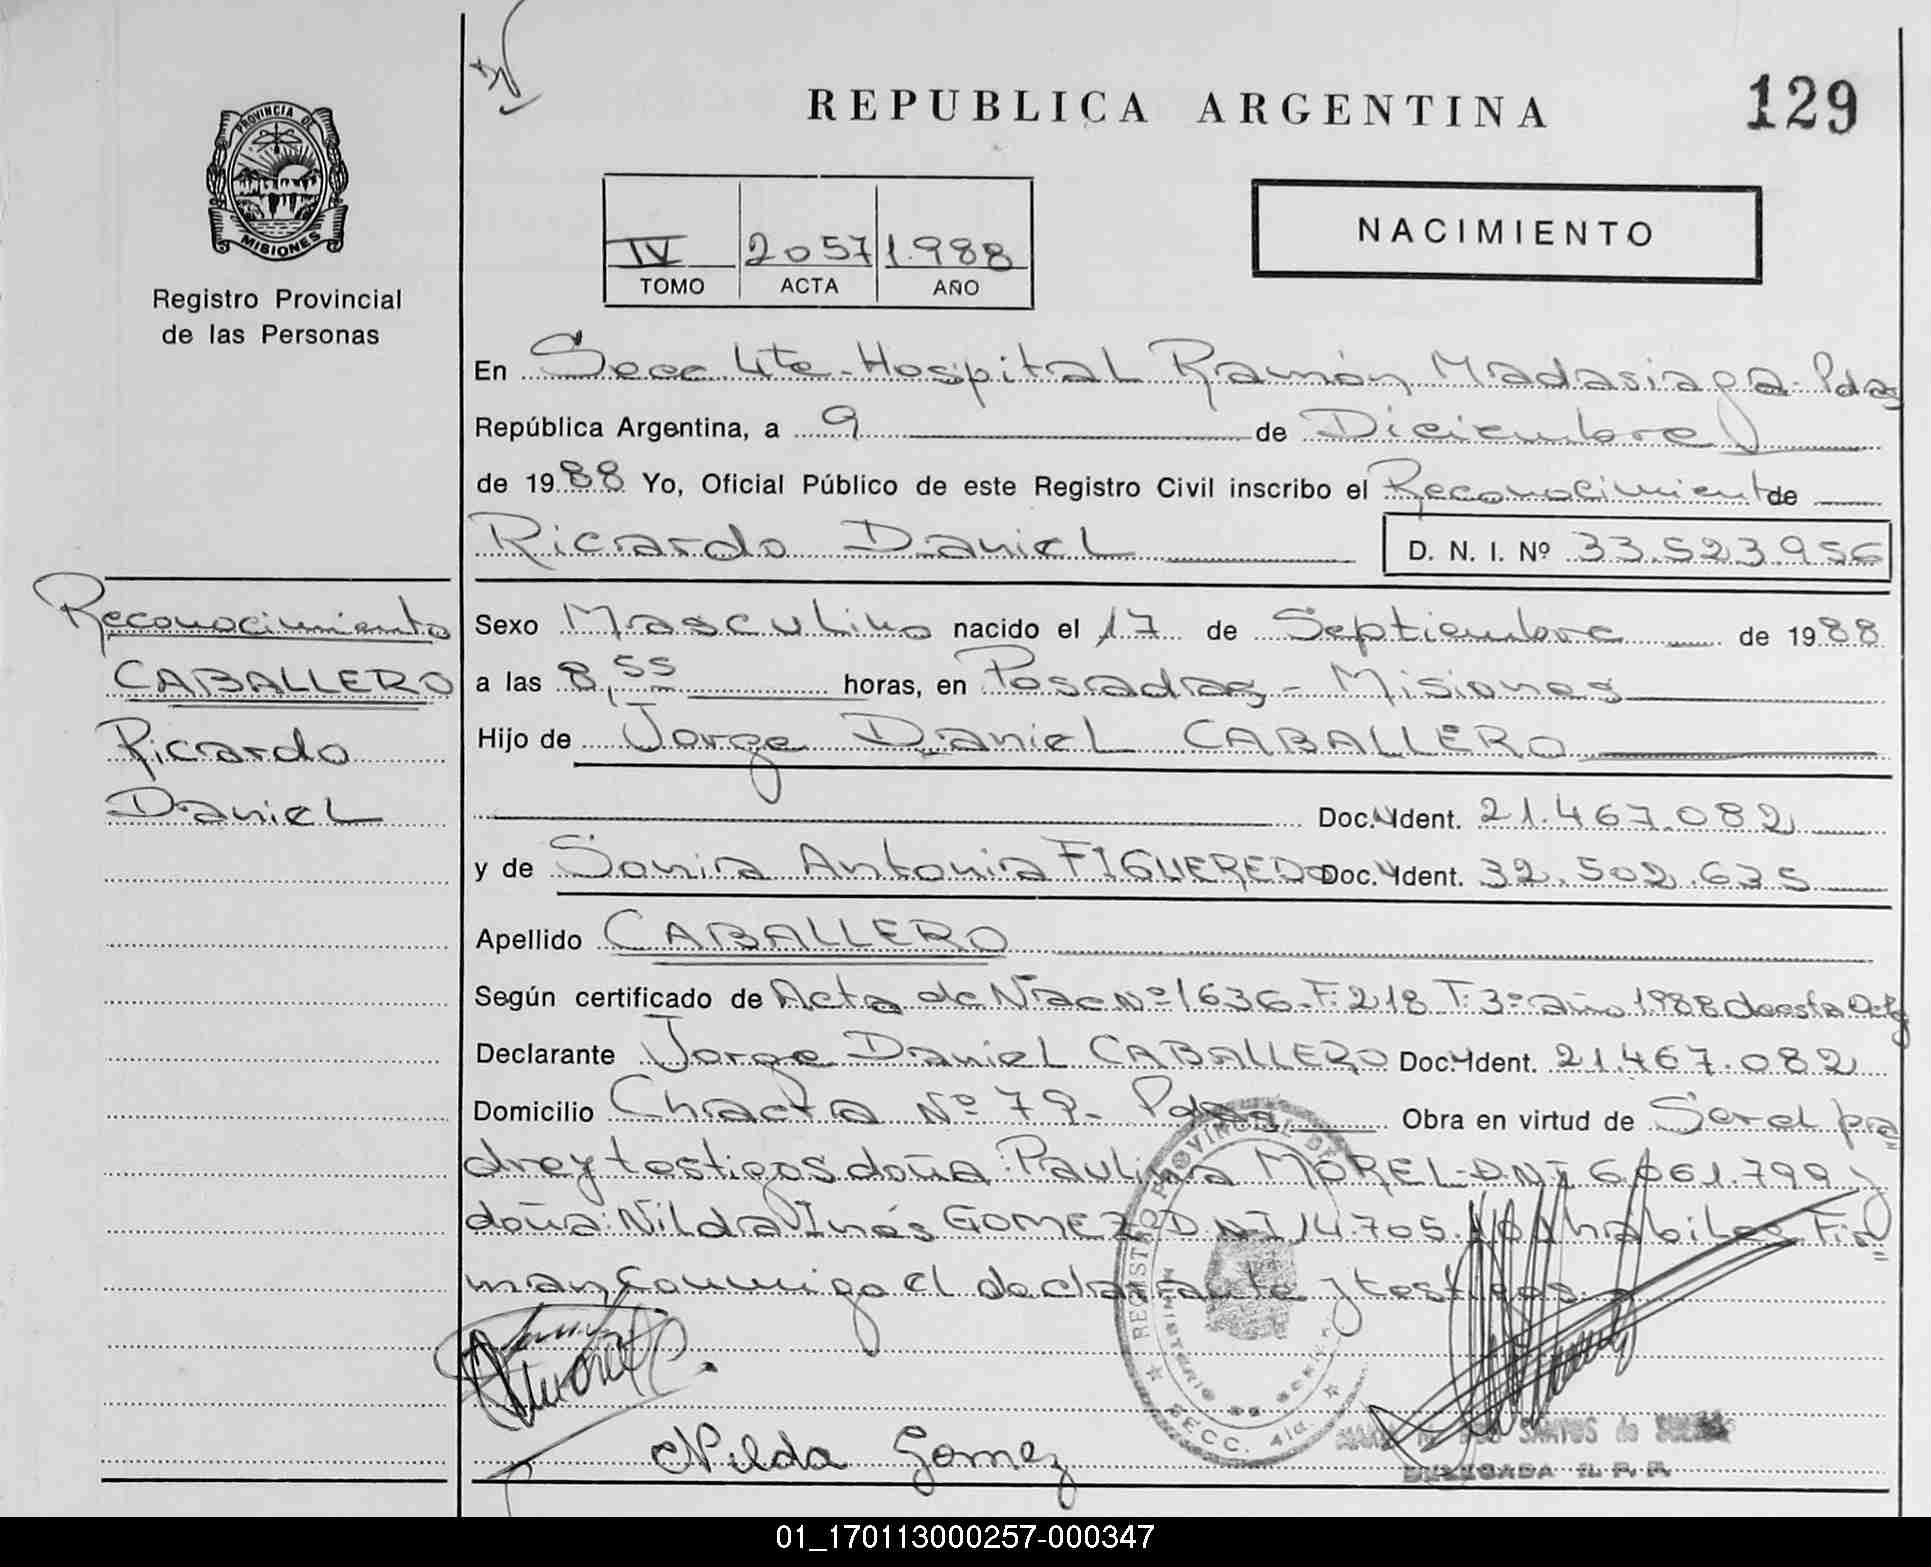 129
REPUBLICA ARGENTINA
PROVINCIA DE
MISIONES
Registro Provincial
de las Personas
NACIMIENTO
IV 2057 1.988
TOMO ACTA AÑO
En Secc 4ta - Hospital Ramón Madariaga - Pdas
República Argentina, a 9 de Diciembre
de 1988 Yo, Oficial Público de este Registro Civil inscribo el Reconocimiento de
Ricardo Daniel D. N. I. Nº 33.523.956
Reconocimiento
CABALLERO
Ricardo
Daniel
Sexo Masculino nacido el 17 de Septiembre de 1988
a las 8,55 horas, en Posadas - Misiones
Hijo de Jorge Daniel CABALLERO
Doc. Ident. 21.467.082
y de Sonia Antonia FIGUEREDO Doc. Ident. 32.502.635
Apellido CABALLERO
Según certificado de Acta de Nac Nº 1636 - F: 218 T: 3º año 1988 de esta
Declarante Jorge Daniel CABALLERO Doc. Ident. 21.467.082
Domicilio Chacra Nº 79 - Pdas Obra en virtud de Ser el pa=
dre y testigos doña: Paulina MOREL - D.N.I 6.061.799 y
doña: Nilda Inés GOMEZ D.N.I 14.705. hábiles Fir=
man conmigo el declarante y testigos.
REGISTRO PROVINCIAL DE
MINISTERIO DE
SECC. 4ta.
Nilda Gomez
SANTOS de
DELEGADA R. P. P.
01_170113000257-000347